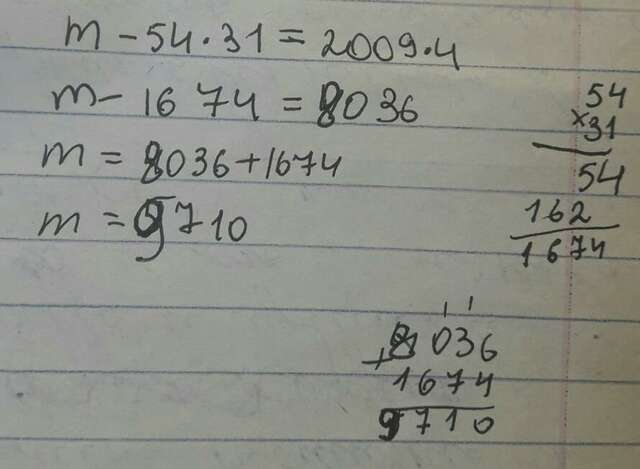 m - 54 · 31 = 2009 · 4
m - 1674 = 8036
m = 8036 + 1674
m = 9710
54
× 31
54
162
1674
1 1
+ 8036
1674
9710